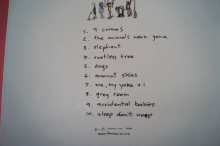 1. 9 crimes
2. the animals were gone
3. elephant
4. rootless tree
5. dogs
6. coconut skins
7. me, my yoke + i
8. grey room
9. accidental babies
10. sleep don't weep